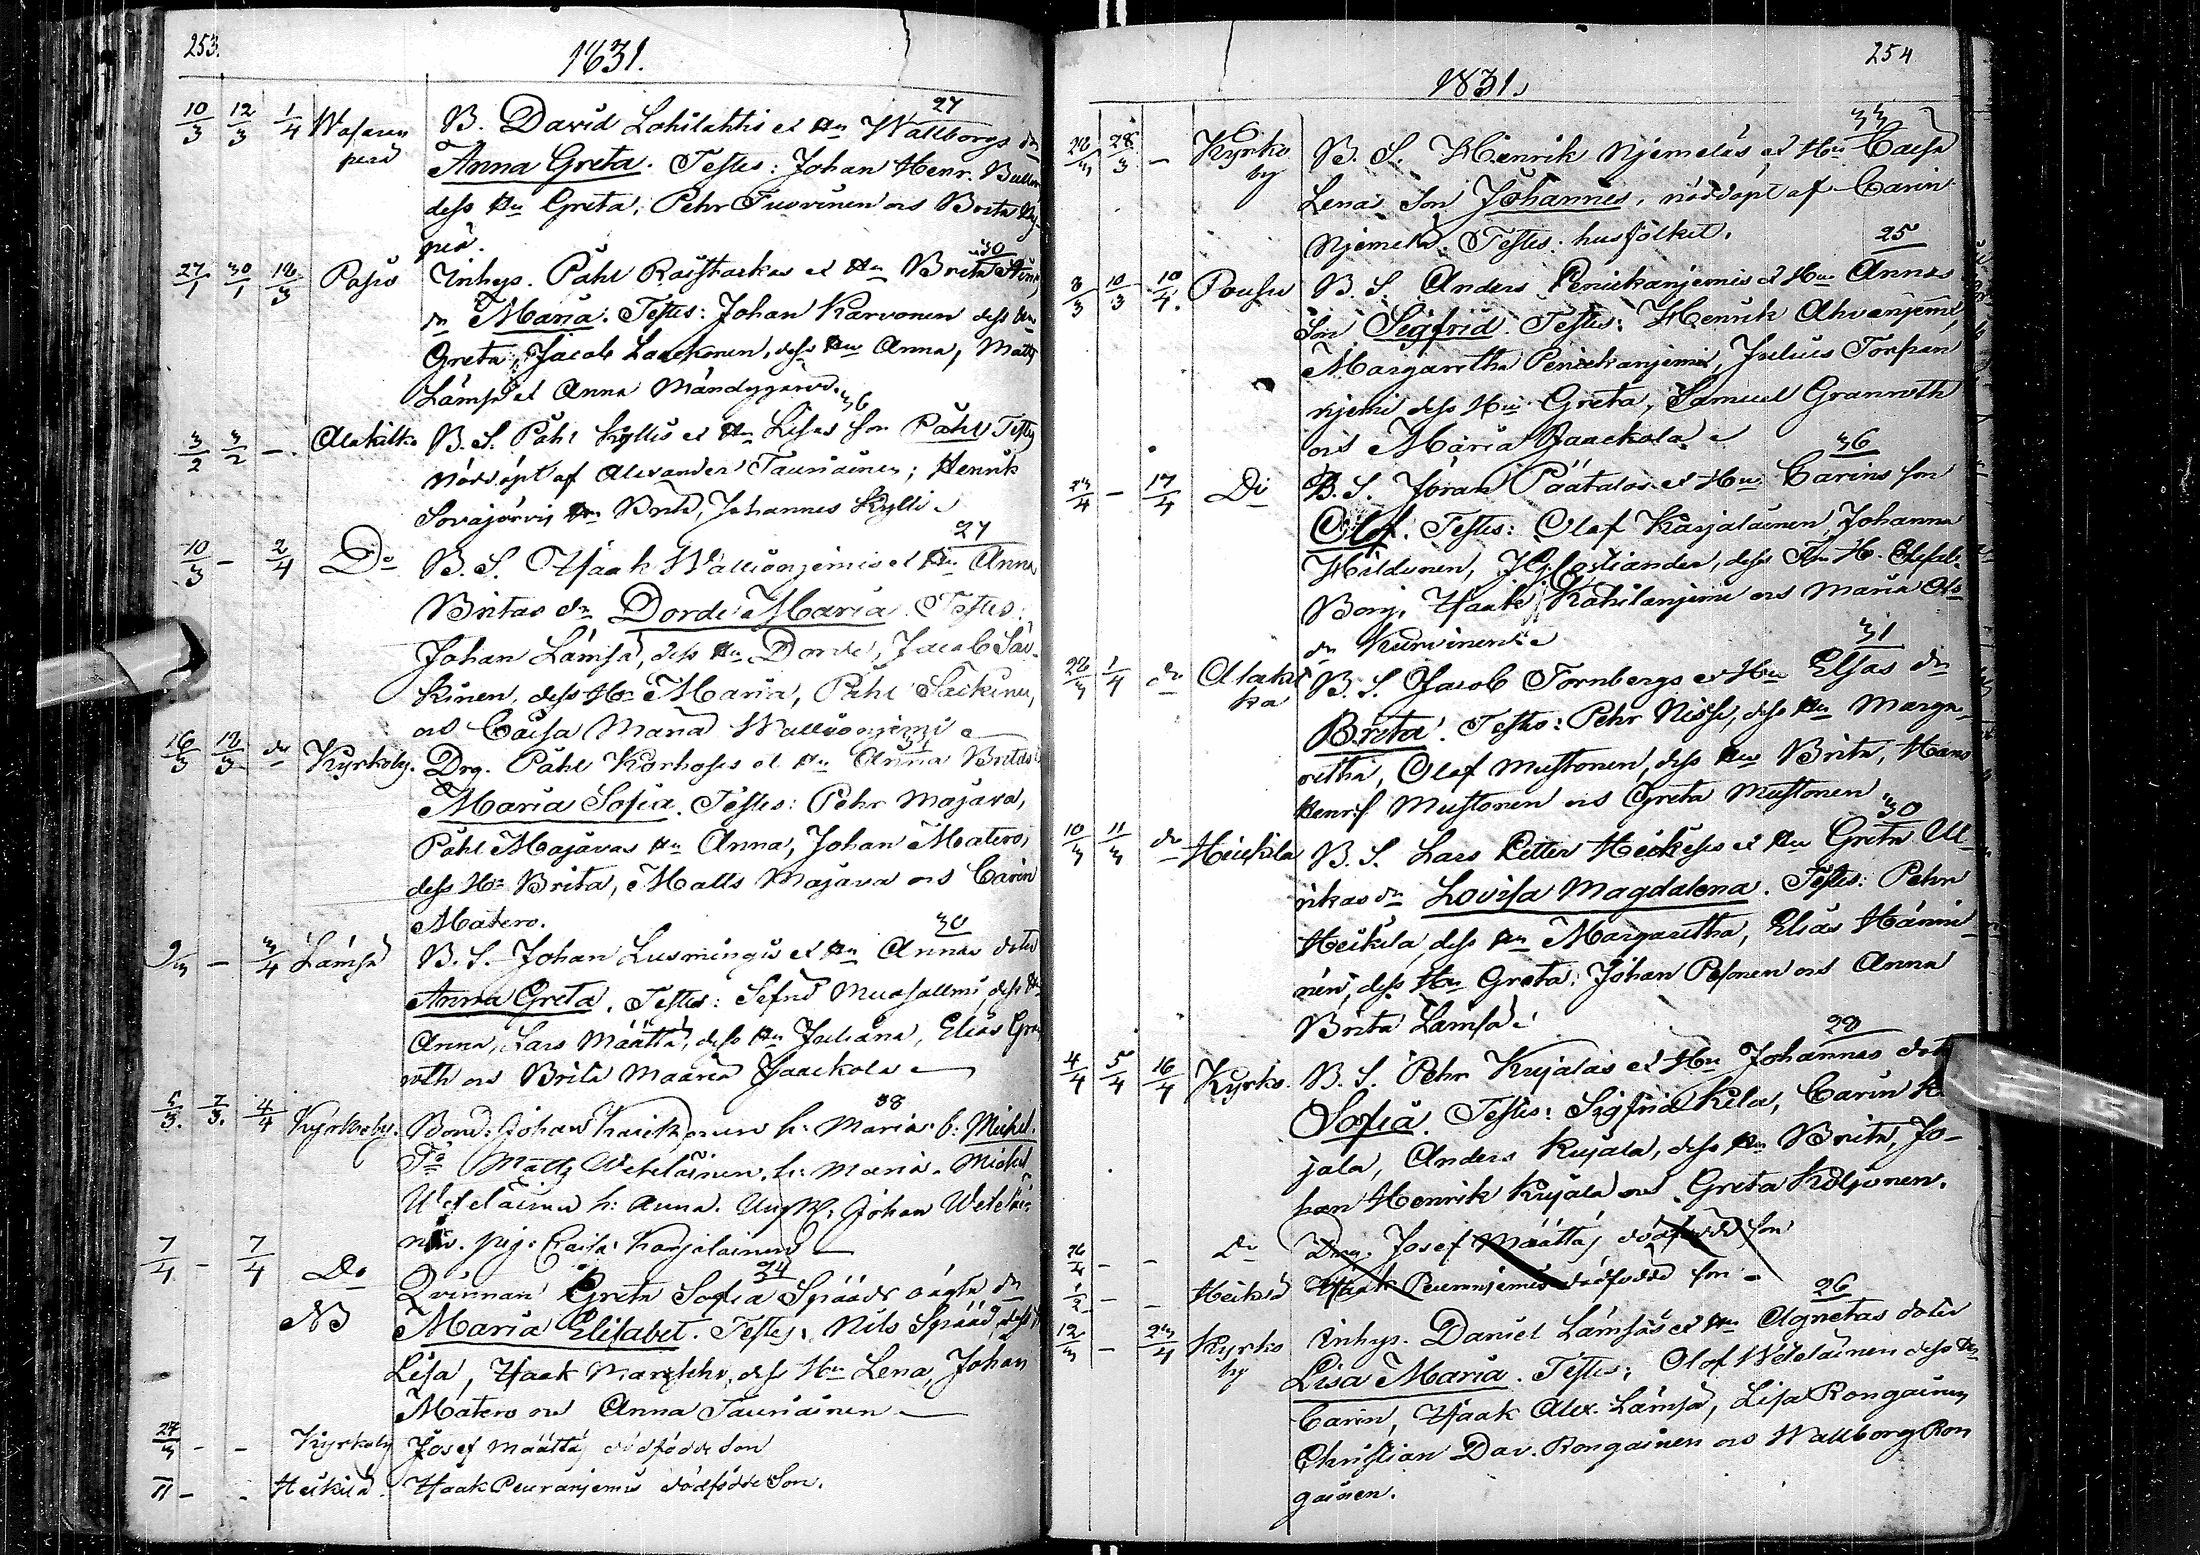 253.
1831.
10/3 12/3 1/4 B. David Lohilahtis et Hu Wallborgs dr 27
Anna Greta. Testes: Johan Henr.
dess Hu Greta; Pehr Tuorinen och Brita
27/1 30/1 Pasio Inhys. Påhl Raistackas et Hu Brita Stinas 30
dr Maria. Testes: Johan Karvonen dess Hu
Greta, Jacob Laackonen, dess Hu Anna, Matts
Lämsä et Anna Mändygaard. 36
3/2 3/2 - Alakitka B. S. Påhl Kyllis et Hu Lisas son Påhl Testes
nöddöpt af Alexander Tauriainen; Henrik
Sovajärvi Hu Brita, Johannes Kylli
10/3 - 2/4 Do B. S. Isaak Wallionjemis et Hu Anna 27
Britas dr Dorde Maria. Testes:
Johan Lämsä, dess Hu Dorde, Jacob Säi-
kinen, dess Hu Maria, Påhl Säikinen,
och Caisa Maria Wallionjemi
16/3 18/3 do Kyrkoby. Drg. Påhl Korhoses et Hu Anna Britas 31
Maria Sofia. Testes: Pehr Majava,
Påhl Majavas Hu Anna, Johan Matero,
dess Hu Brita, Matts Majava och Carin
Matero.
9/3 - 3/4 Lämsä B. S. Johan Lusmingis et Hu Annas doter 30
Anna Greta. Testes: Sefrid Muosallmi dess Hu
Anna, Lars Määttä, dess Hu Juliana, Elias Gran
roth och Brita Maaria Jaackola
5/3. 7/3. 4/4 Kyrkoby. Bond: Johan h: Maria. b: Michel. 38
Matts Wetelainen, h: Maria. Michel
Wetelainen h: Anna. Johan Wetelai-
nen. pig: Caisa Karjalainen
7/4 - 7/4 Do Qvinnan Greta Sofia Spååds oägta dr 24
NB Maria Elisabet. Testes: Nils Spååd, dess H
Lisa, Isaak Markku, dess Hu Lena, Johan
Matero och Anna Tauriainen
27/3 - - Kyrkoby Josef Määttäs dödfödde son
11 - - Heikilä. Isaak Peuranjemis dödfödde son.
254
1831.
26/3 28/3 - Kyrko by B. S. Henrik Njemeläs et Hu Caisa 33
Lenas son Johannes, nöddöpt af Carin
Njemelä. Testes: husfolket.
8/3 10/3 10/4. Poussu B. S. Anders Penickanjemis et Hu Annas 25
son Sigfrid. Testes: Henrik Ahvenjemi,
Margaretha Penickanjemi, Julius Torfvan
njemi dess Hu Greta, Samuel Granroth
och Maria Jaackola
- 17/4 Do B. S. Jöran Päätalos et Hu Carins son 36
Olof. Testes: Olof Karjalainen, Johanna
Hildonen, Hj. Costiander, dess Fru H. Elisab.
Borg, Isaak Kohilanjemi och Maria Ols
dr Kurvinen
26/3 1/4 do Alakit ka B. S. Jacob Tornbergs et Hu Elsas dr 31
Brita. Testes: Pehr Nissi, dess Hu Marga-
retha, Olof Mustonen, dess Hu Brita, Hans
Henrik Mustonen och Greta Mustonen
10/3 11/3 do Heickilä B. S. Lars Petter Heickises et Hu Greta Ul- 30
rikas dr Lovisa Magdalena. Testes: Pehr
Heikilä, dess Hu Margaretha, Elias Hänni-
nen, dess Hu Greta; Johan Pesonen och Anna
Brita Lämsä
4/4 5/4 16/4 Kyrko. B. S. Pehr Kujalas et Hu Johannas doter 28
Sofia. Testes: Sigfrid Kela, Carin
jala, Anders Kujala, dess Hu Brita, Jo-
han Henrik Kujala och Greta Koljonen.
- - Do Drg. Josef Määttäs dödfödd son
- - Heikilä Isaak Peuranjemis dödfödd son
12/3 - 24/4 Kyrko by Inhys. Daniel Lämsäs et Hu Agnetas doter 26
Lisa Maria. Testes: Olof Wetelainen dess Hu
Carin, Isaak Alex. Lämsä, Lisa Rongainen
Christian Dav. Rongainen och Wallborg Ron
gainen.